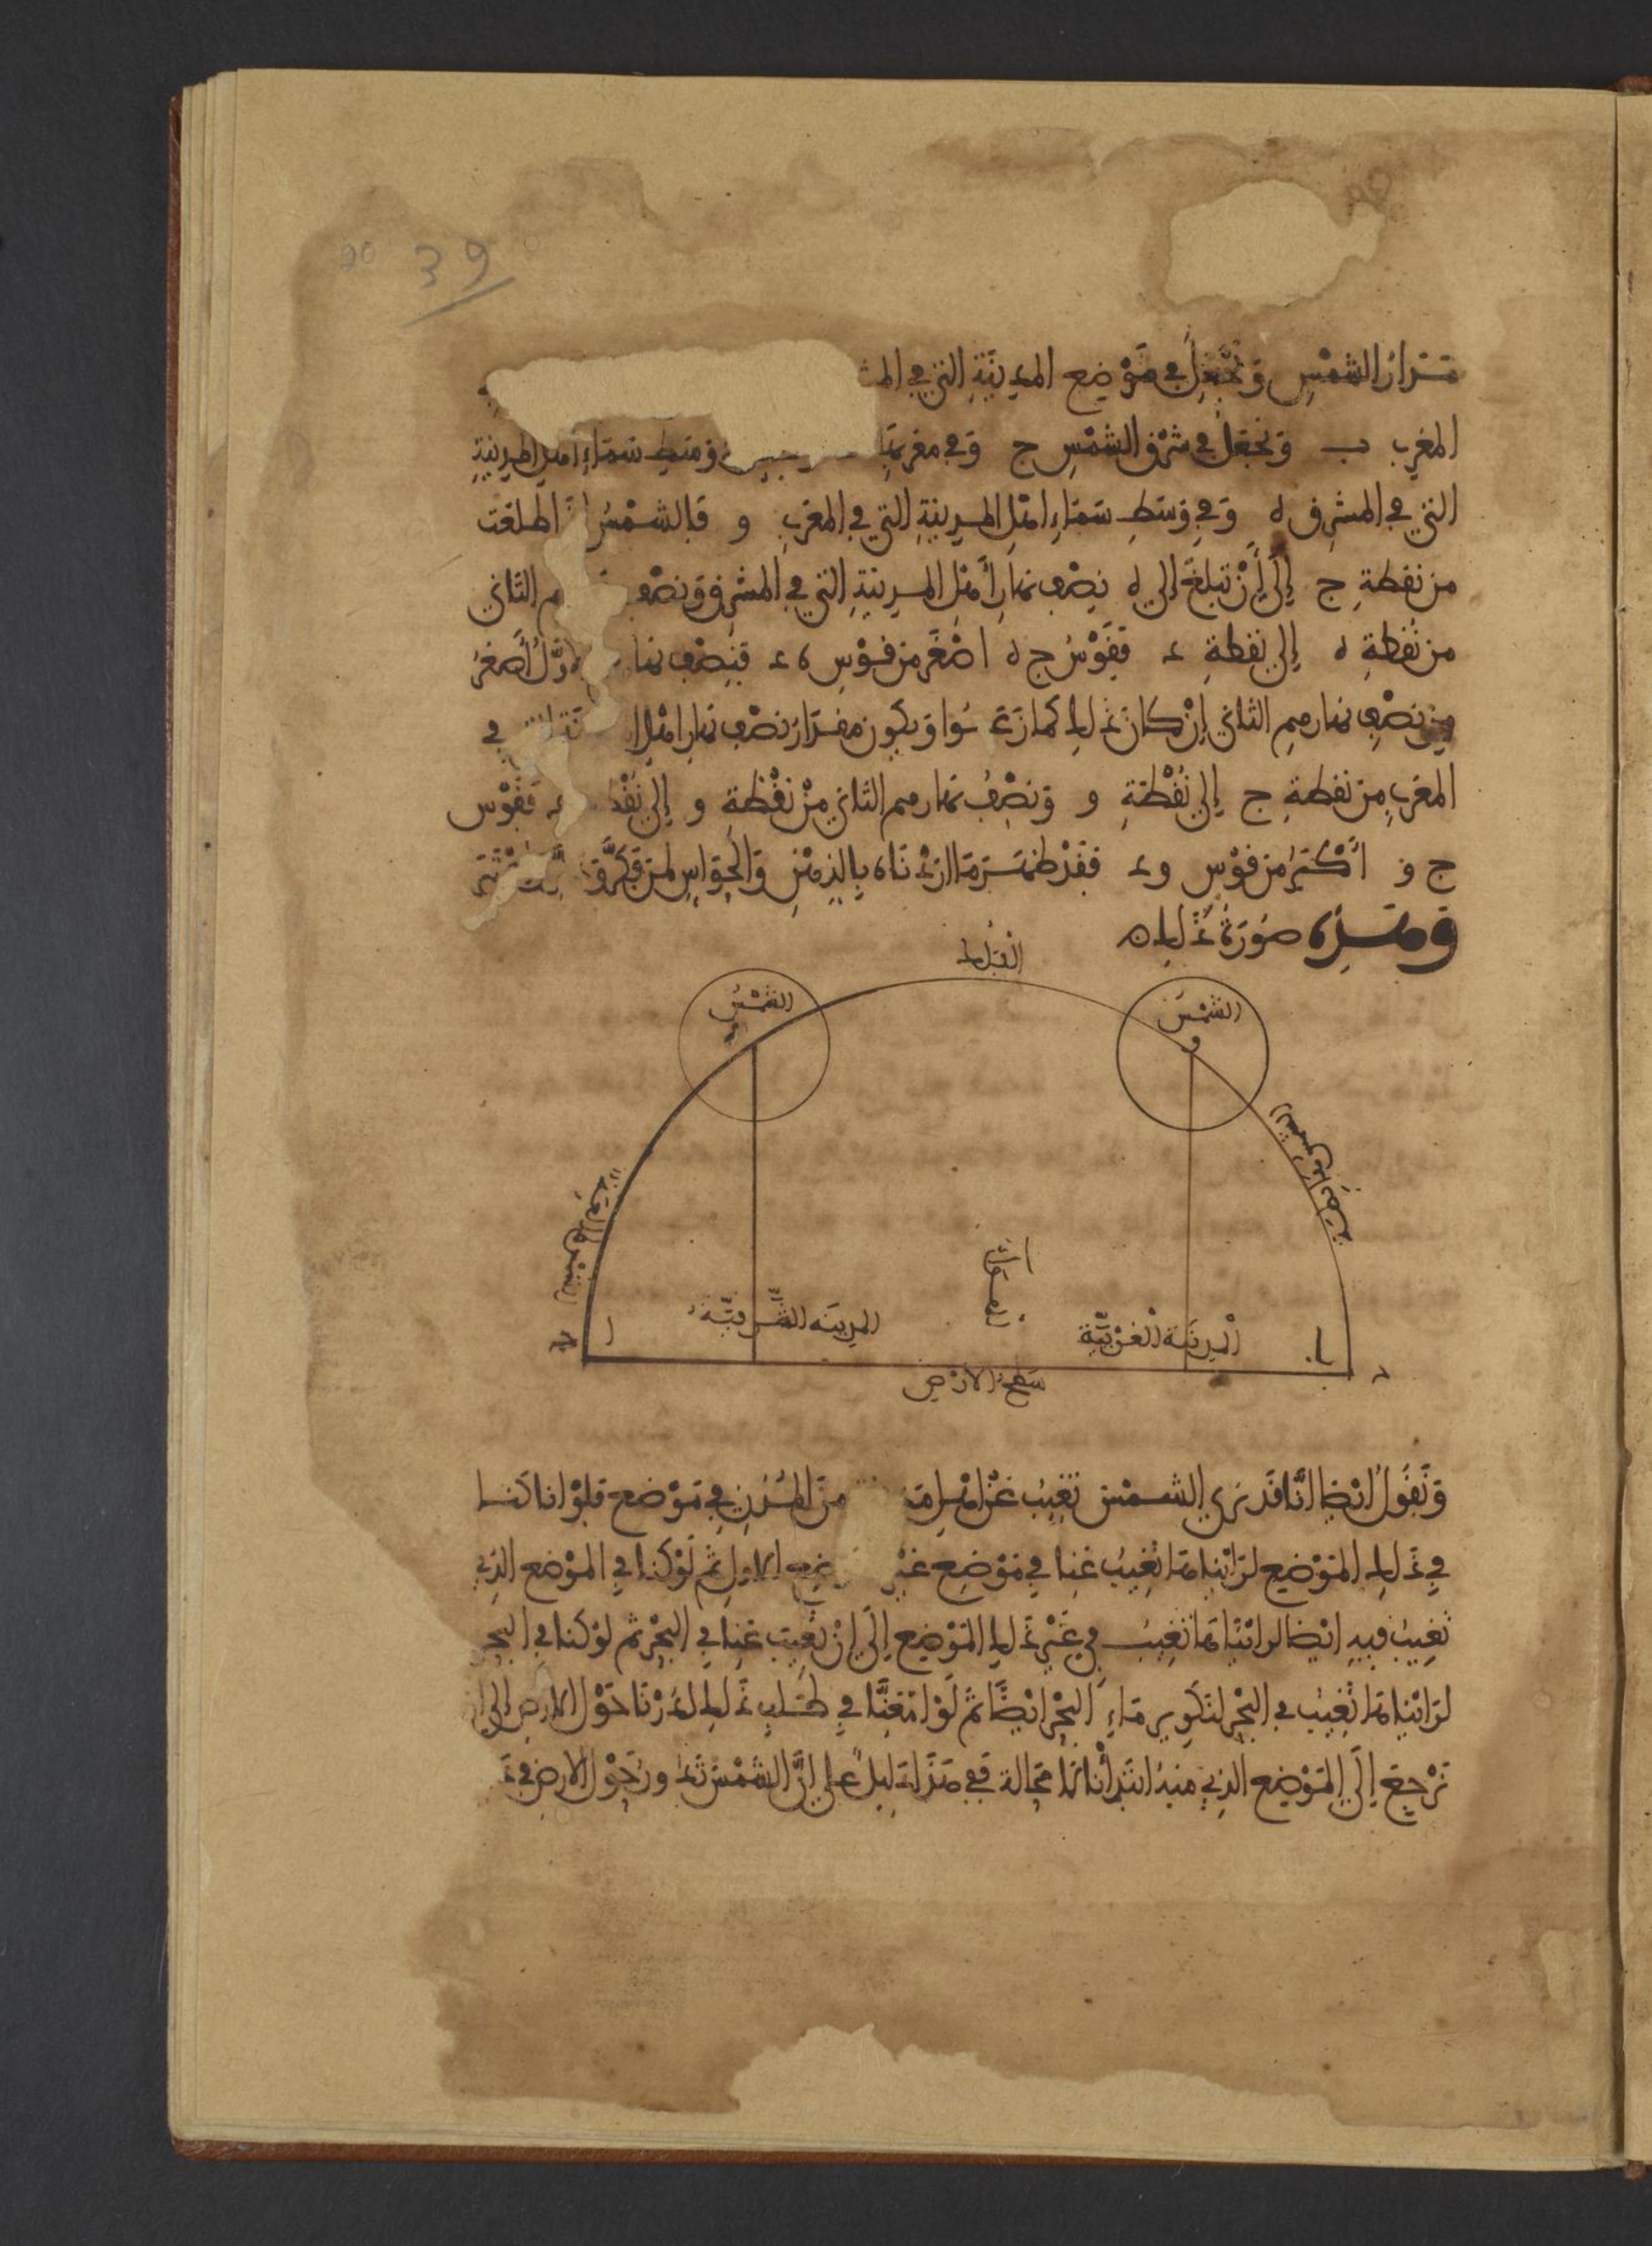 39
مدار الشمس ونجعل في موضع المدينة التي في
المغرب ب ونجعل في شرق الشمس ج وفي مغربها وفي وسط سماء اهل المدينة
التي في المشرق ه وفي وسط سماء اهل المدينة التي في المغرب و فالشمس اذا طلعت
من نقطة ج إلى أن تبلغ إلى ه نصف نهار أهل المدينة التي في المشرق ونصف الثاني
من نقطة ه إلى نقطة د فقوس ج ه اصغر من قوس ه د فنصف أصغر
من نصف نهارهم الثاني إن كان ذلك كما زعموا ويكون مقدار نصف نهار اهل في
المغرب من نقطة ج إلى نقطة و ونصف نهارهم الثاني من نقطة و إلى د فقوس
ج و أكثر من قوس و د فقد ظهر ما اردناه بالذهن والحواس لمن
وهذه صورة ذلك
الفلك
الشمس
الشمس
و
الشمس في الغربية
ا
المدينة الشرقية
المدينة الغربية
ب
د
سطح الارض
ونقول ايضا انا قد نرى الشمس تغيب عن اهل من المدن في موضع فلو انا كنا
في ذلك الموضع لرأيناها تغيب عنا في موضع غير الاول ثم لو كنا في الموضع الذي
تغيب فيه ايضا لرأيناها تغيب في غير ذلك الموضع إلى ان تغيب عنا في البحر ثم لو كنا في البحر
لرأيناها تغيب في البحر لتكوير ماء البحر ايضا ثم لو امعنا في طلب ذلك لدرنا حول الارض إلى ان
نرجع إلى الموضع الذي منه ابتدأنا لا محالة ففي هذا دليل على ان الشمس تدور حول الارض